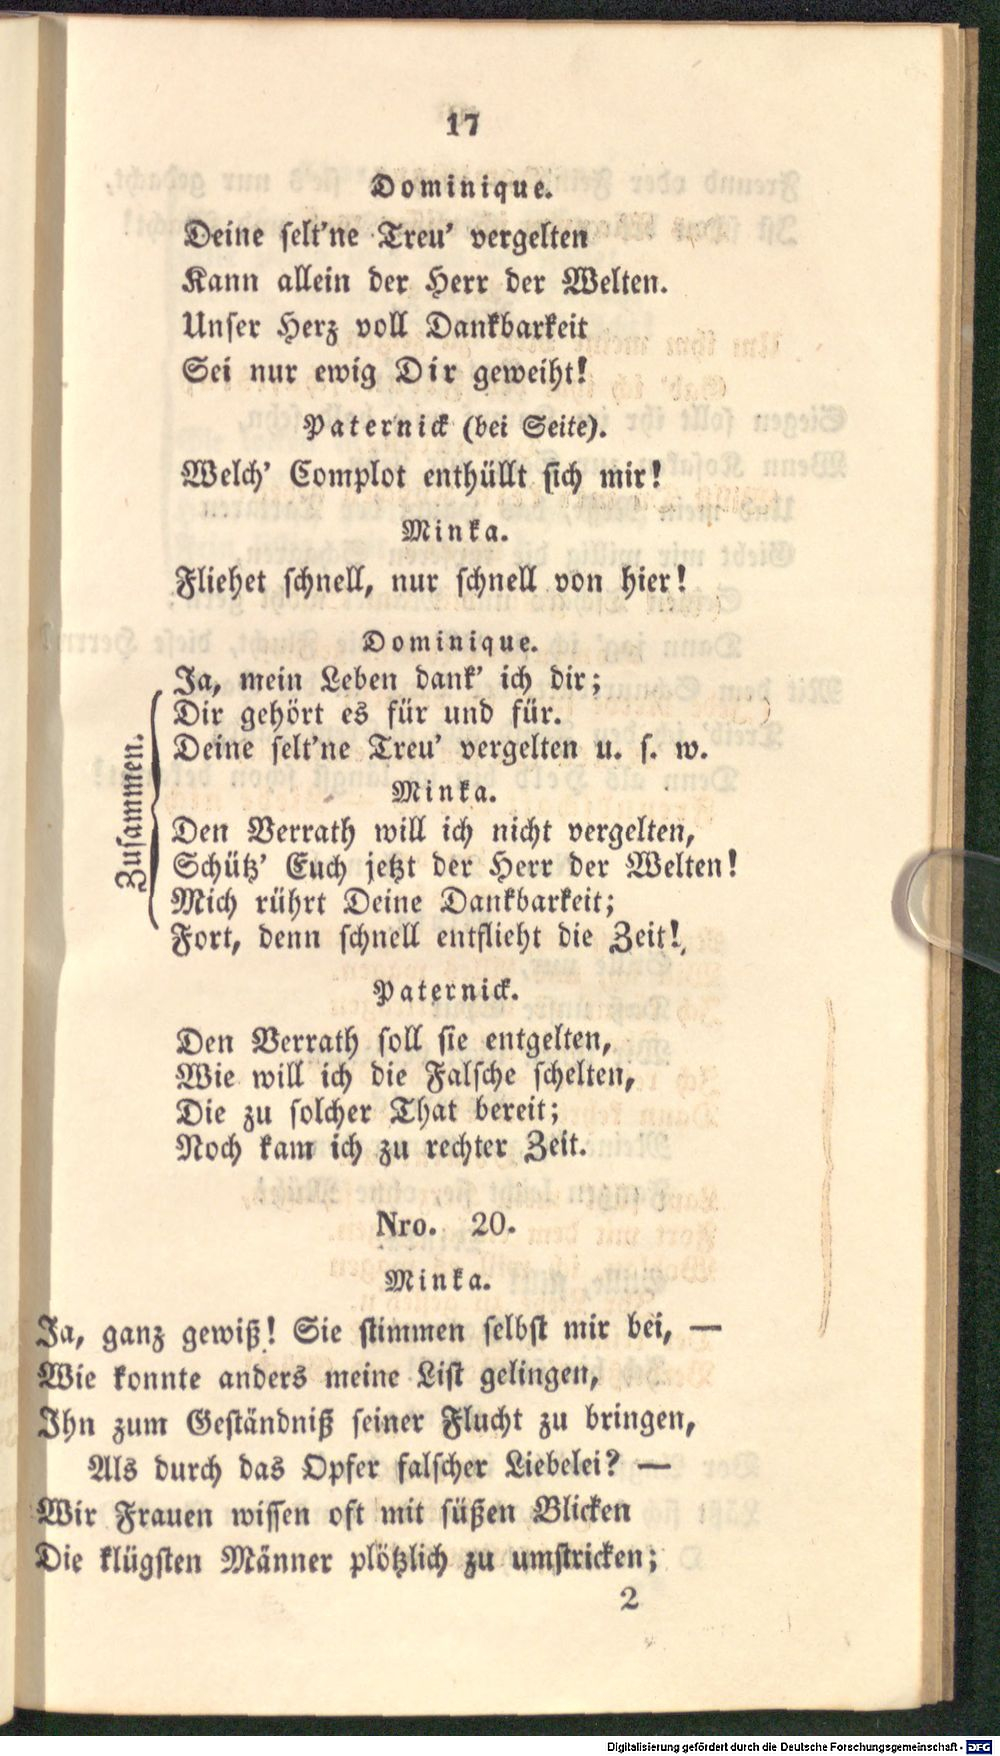 17
Dominique.
Deine selt'ne Treu' vergelten
Kann allein der Herr der Welten.
Unser Herz voll Dankbarkeit
Sei nur ewig Dir geweiht!
Paternick (bei Seite).
Welch' Complot enthüllt sich mir!
Minka.
Fliehet schnell, nur schnell von hier!
Dominique.
Ja, mein Leben dank' ich dir;
Dir gehört es für und für.
Deine selt'ne Treu' vergelten u. s. w.
Zusammen.
Minka.
Den Verrath will ich nicht vergelten,
Schütz' Euch jetzt der Herr der Welten!
Mich rührt Deine Dankbarkeit;
Fort, denn schnell entflieht die Zeit!
Paternick.
Den Verrath soll sie entgelten,
Wie will ich die Falsche schelten,
Die zu solcher That bereit;
Noch kam ich zu rechter Zeit.
Nro. 20.
Minka.
Ja, ganz gewiß! Sie stimmen selbst mir bei, —
Wie konnte anders meine List gelingen,
Ihn zum Geständniß seiner Flucht zu bringen,
Als durch das Opfer falscher Liebelei? —
Wir Frauen wissen oft mit süßen Blicken
Die klügsten Männer plötzlich zu umstricken;
2
Digitalisierung gefördert durch die Deutsche Forschungsgemeinschaft - DFG